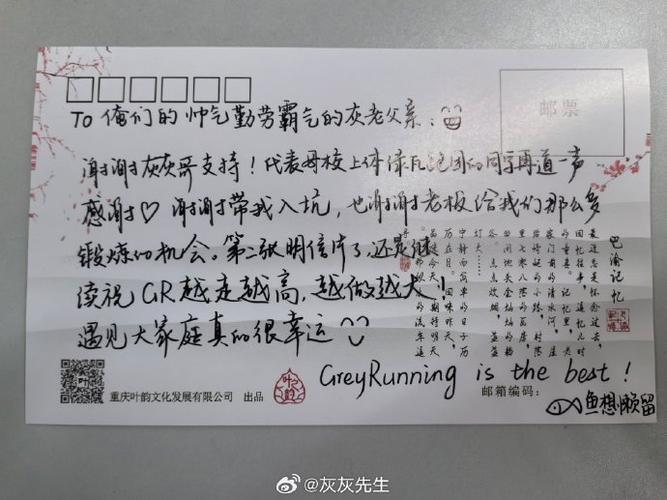 To 俺们的帅气勤劳霸气的灰老父亲：
邮票
谢谢灰灰哥支持！代表母校上体绿瓦跑团的同学再道一声
感谢♡ 谢谢带我入坑，也谢谢老板给我们那么多
锻炼的机会。第二张明信片了，还是继
续祝 GR 越走越高，越做越大！
遇见大家庭真的很幸运
GreyRunning is the best！
鱼想懒留
巴渝记忆
重庆叶韵文化发展有限公司 出品
叶韵
邮箱编码：
@灰灰先生